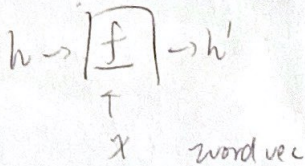 h → f → h'
↑
x word vec